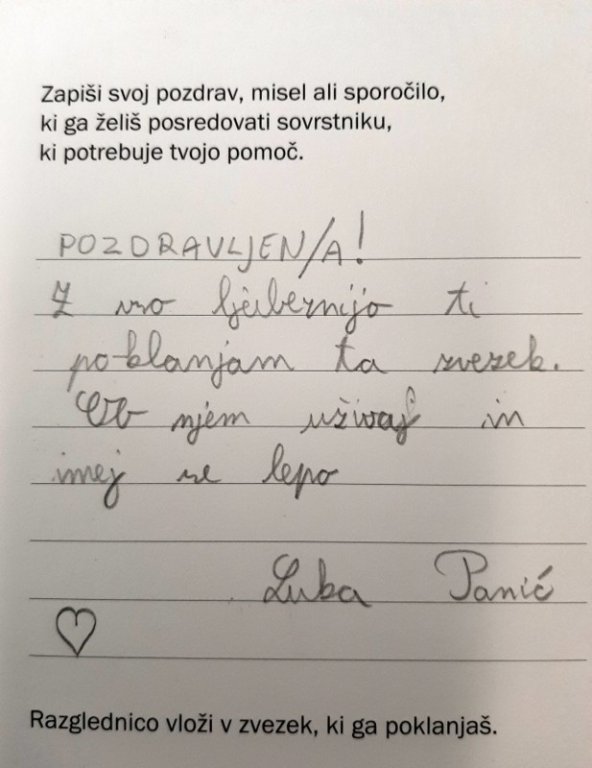 Zapiši svoj pozdrav, misel ali sporočilo,
ki ga želiš posredovati sovrstniku,
ki potrebuje tvojo pomoč.
POZDRAVLJEN/A!
Z vso ljubeznijo ti
poklanjam ta zvezek.
Ob njem uživaj in
imej se lepo
Luba Panić
Razglednico vloži v zvezek, ki ga poklanjaš.